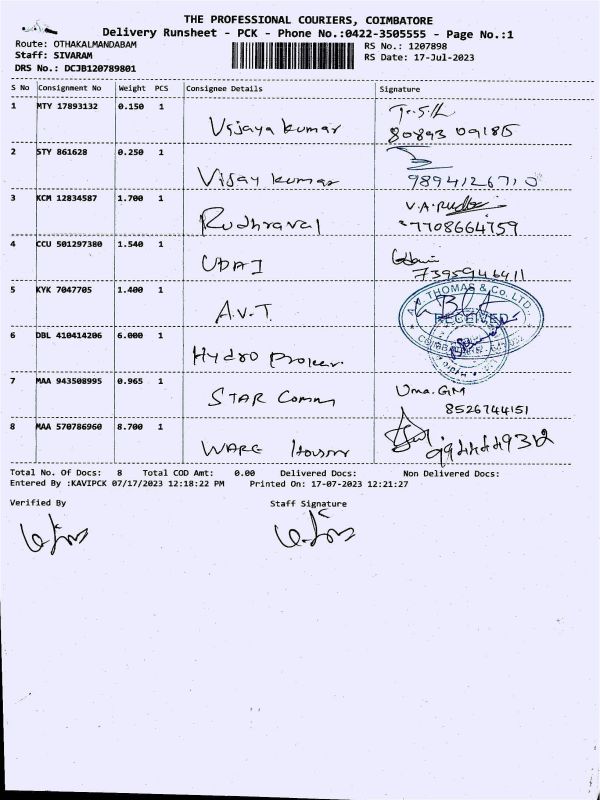 THE PROFESSIONAL COURIERS, COIMBATORE
Delivery Runsheet - PCK - Phone No.:0422-3505555 - Page No.:1
Route: OTHAKALMANDABAM RS No.: 1207898
Staff: SIVARAM RS Date: 17-Jul-2023
DRS No.: DCJB120789801
S No Consignment No Weight PCS Consignee Details Signature
1 MTY 17893132 0.150 1
Vijaya kumar 80893 09185
2 STY 861628 0.250 1
Vijay kumar 9894126710
3 KCM 12834587 1.700 1 V.A.
Rudhraval 7708664759
4 CCU 501297380 1.540 1
UDAI 7395946411
5 KYK 7047705 1.400 1 A.V. THOMAS & Co. LTD.,
A.V.T RECEIVED
6 DBL 410414206 6.000 1
Hydro
7 MAA 943508995 0.965 1 Uma.GM
STAR Comm 8526744151
8 MAA 570786960 8.700 1
WARE
Total No. Of Docs: 8 Total COD Amt: 0.00 Delivered Docs: Non Delivered Docs:
Entered By :KAVIPCK 07/17/2023 12:18:22 PM Printed On: 17-07-2023 12:21:27
Verified By Staff Signature